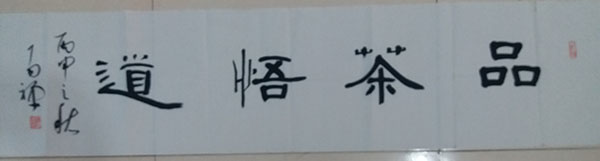 品茶悟道
丙申之秋